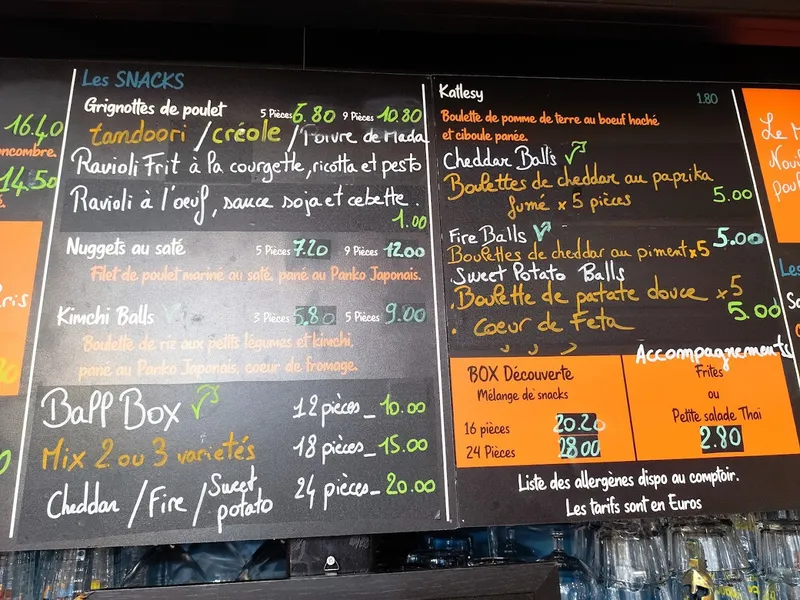 16.40
oncombre.
14.50
Les SNACKS
Grignottes de poulet 5 Pièces 6.80 9 Pièces 10.80
tandoori / créole / Poivre de Mada
Ravioli Frit à la courgette, ricotta et pesto
Ravioli à l'oeuf, sauce soja et cebette.
1.00
Nuggets au saté 5 Pièces 7.20 9 Pièces 12.00
Filet de poulet mariné au saté, pané au Panko Japonais.
Kimchi Balls 3 Pièces 5.80 5 Pièces 9.00
Boulette de riz aux petits légumes et kimchi,
pané au Panko Japonais, coeur de fromage.
Ball Box 12 pièces_ 10.00
Mix 2 ou 3 varietés 18 pièces_ 15.00
Cheddar / Fire / Sweet potato 24 pièces_ 20.00
Katlesy 1.80
Boulette de pomme de terre au boeuf haché
et ciboule panée.
Cheddar Balls
Boulettes de cheddar au paprika
fumé x 5 pièces 5.00
Fire Balls 5.00
Boulettes de cheddar au piment x5
Sweet Potato Balls
. Boulette de patate douce x5
. coeur de Feta 5.00
BOX Découverte
Mélange de snacks
16 pièces 20.20
24 Pièces 28.00
Accompagnements
Frites
ou
Petite salade Thai
2.80
Liste des allergènes dispo au comptoir.
Les tarifs sont en Euros
Le
Les